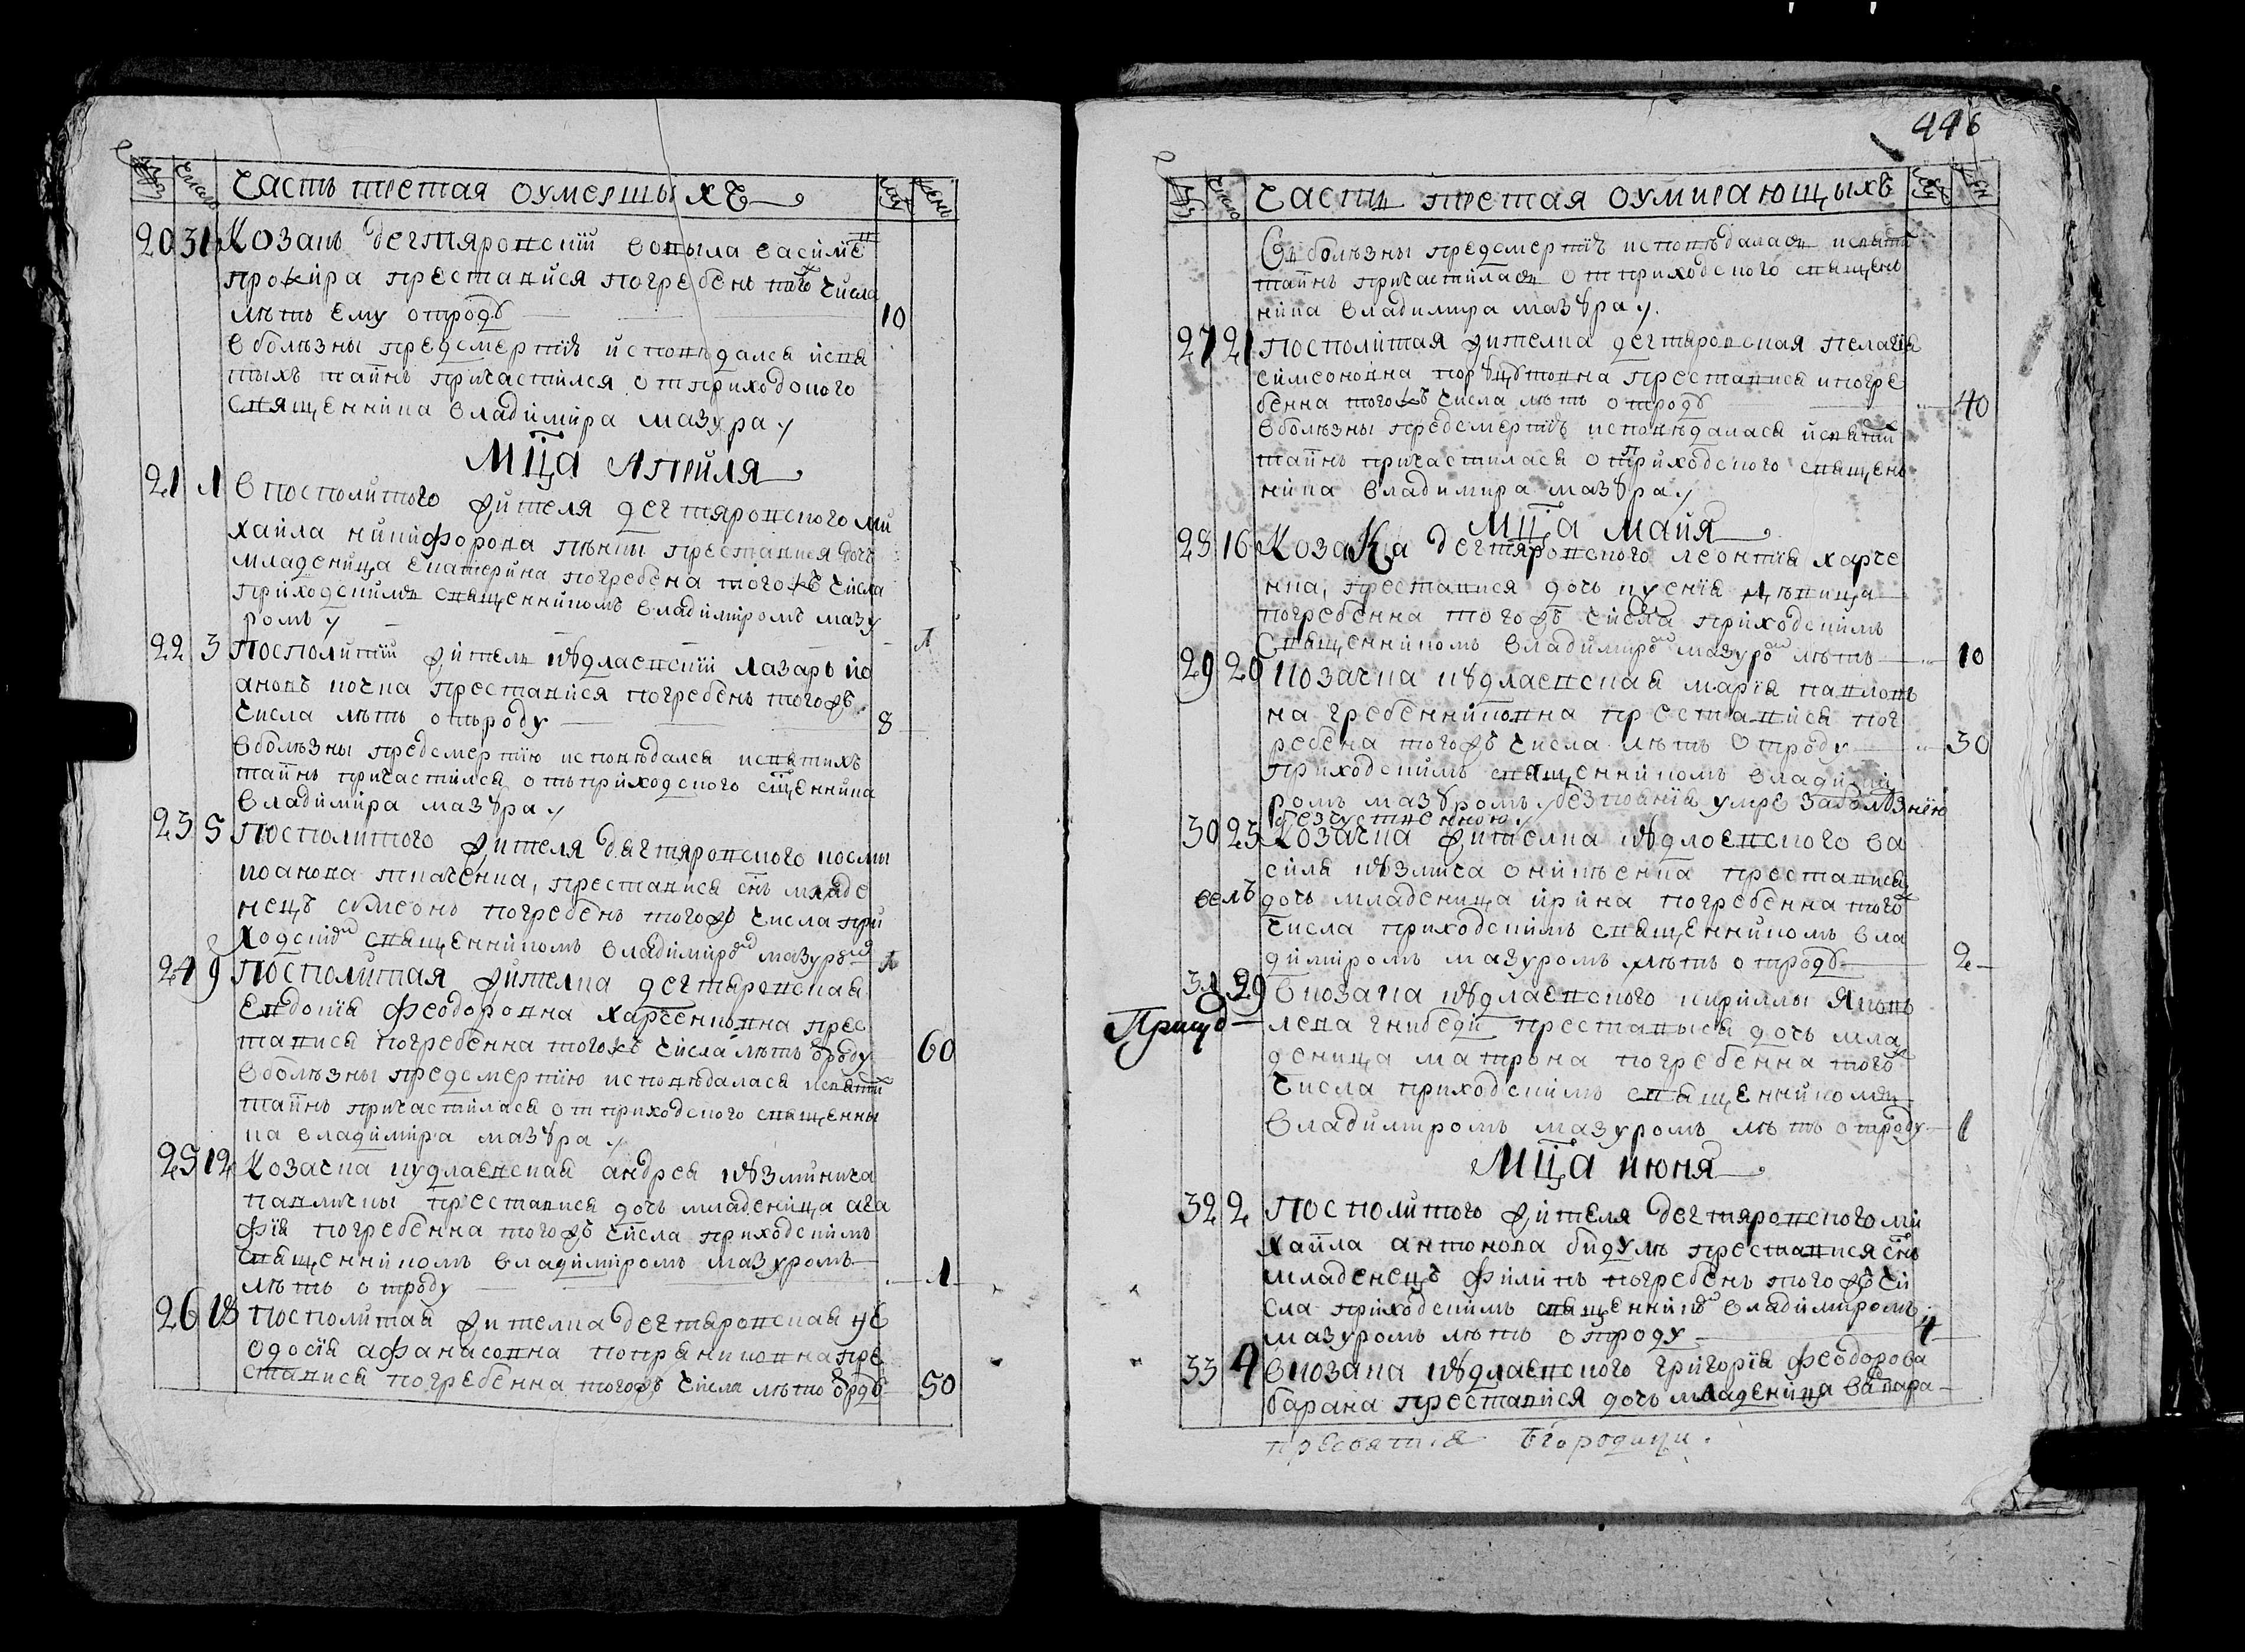 Часть третая оумершыхъ
муж
жень
20 31 Козакъ дегтяровский
прокира преставися погребенъ того числа
лѣтъ ему отроду 10
в болѣзны предсмертнѣ исповѣдался
тыхъ таинъ причастился от приходского
священника владимира мазура
Мца Априля
21 1 В посполитого жителя дегтяровского ми
хаила никифорова преставися дочъ
младеница екатерина погребена того жъ числа
приходскимъ священникомъ владимиромъ мазу
ромъ 1
22 3 Посполитий жителъ кудлаевский лазаръ ио
ановъ преставися погребенъ того жъ
числа лѣтъ отъроду 8
в болѣзны предсмертною исповѣдался и святихъ
таинъ причастился отъ приходского сщенника
владимира мазура
23 5 Посполитого жителя дегтяровского космы
иоанова ткаченка, преставися снъ младе
нецъ симеонъ погребенъ того жъ числа при
ходскимъ священникомъ владимиромъ мазуромъ 1
24 9 Посполитая жителка дегтяровская
евдокия феодоровна харченковна прес
тавися погребенна того жъ числа лѣтъ отроду 60
в болѣзны предсмертною исповѣдалася и святихъ
таинъ причастилася от приходского священни
ка владимира мазура
25 12 Козачка кудлаевская андрея кузминича
павлички преставися дочъ младеница ага
фия погребенна того жъ числа приходскимъ
священникомъ владимиромъ мазуромъ
лѣтъ отроду 1
26 18 Посполитая жителка дегтяровская
одосия афанасовна преи
ставися погребенна того жъ числа лѣтъ отродъ 50
446
Части третая оумирающыхъ
Въ болѣзны предсмертнѣ исповѣдалася и святихъ
таинъ причастилася от приходского священ
ника владимира мазура
27 21 посполитая жителка дегтяровская пелагия
симеоновна преставися и погре
бенна того жъ числа лѣтъ отроду 40
в болѣзны предсмертнѣ исповѣдалася и святихъ
таинъ причастилася от приходского священ
ника владимира мазура
Мца Маия
28 16 Козака дегтяровского леонтия харче
нка, преставися дочъ ксения дѣвица
погребенна того жъ числа приходскимъ
священникомъ владимиромъ мазуромъ лѣтъ 10
29 20 Козачка кудлаевская мария павлов
на гребенниковна преставися пог
ребена того жъ числа лѣтъ отроду 30
приходскимъ священникомъ владими
ромъ мазуромъ умре за болѣзнию
безчувственною
30 25 Козачка жителка кудлаевского ва
силя кузмича онищенка преставися
дочъ младеница ирина погребенна того
числа приходскимъ священникомъ вла
димиромъ мазуромъ лѣтъ отроду 2
31 29 В козака кудлаевского кирилы яков
лева гнибеди преставыся дочъ мла
деница матрона погребенна того
числа приходскимъ священникомъ
владимиромъ мазуромъ лѣтъ отроду 1
Мца июня
32 2 Посполитого жителя дегтяровского ми
хаила антонова преставися снъ
младенецъ филипъ погребенъ того жъ чи
сла приходскимъ священникомъ владимиромъ
мазуромъ лѣтъ отроду 4
33 4 В козака кудлаевского григория феодорова
барана преставися дочъ младеница вапара
пресвятия Бгородици.